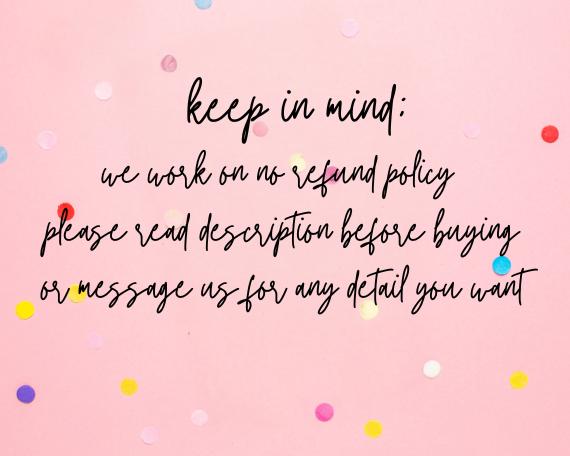 keep in mind:
we work on no refund policy
please read description before buying
or message us for any detail you want